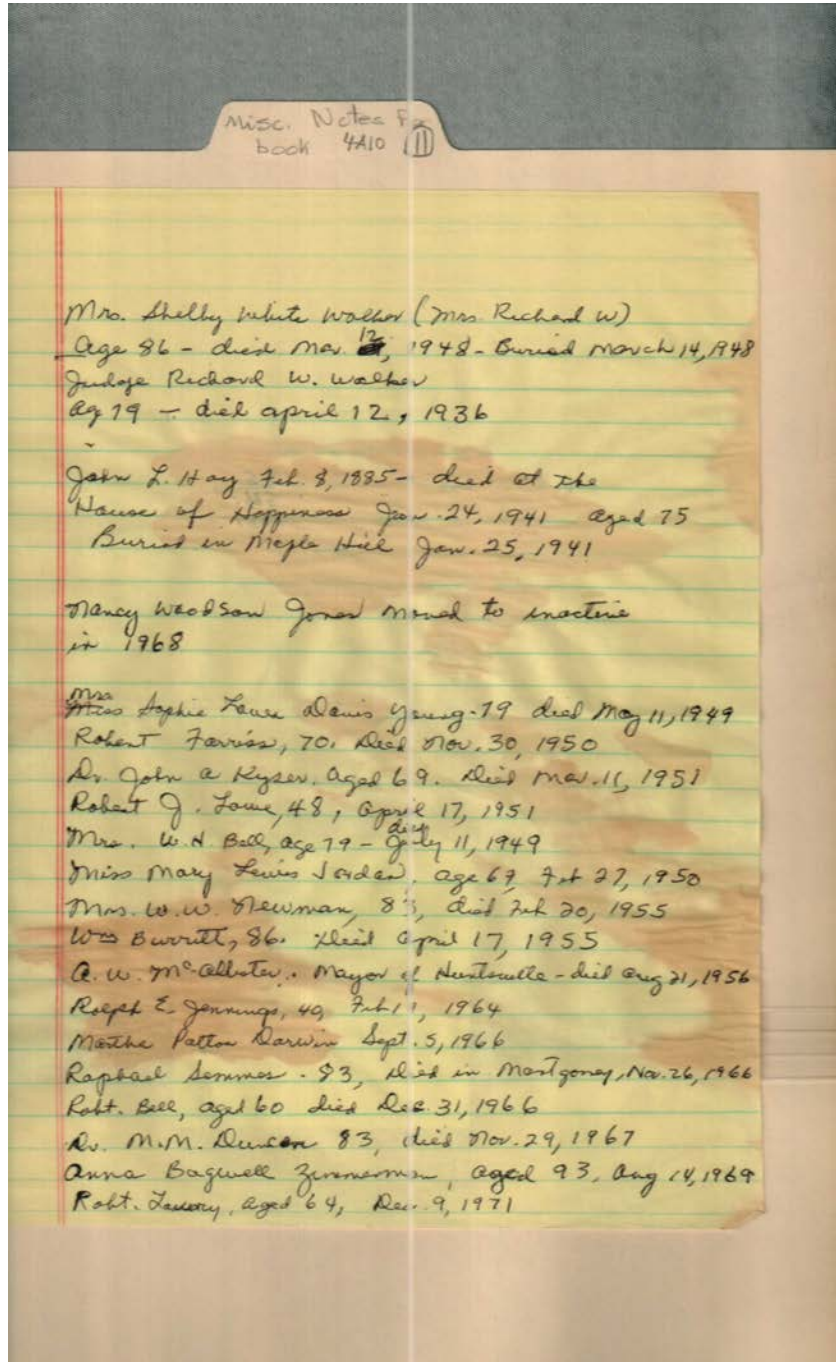 Misc. Notes For
book 4A10 (11)
Mrs. Shelby White Walker (Mrs Richard W)
Age 86 - died Mar 12, 1948 - Buried March 14, 1948
Judge Richard W. Walker
Ag 79 - died April 12, 1936
John L. Hay Feb. 8, 1885 - died at the
House of Happiness Jan. 24, 1941 aged 75
Buried in Maple Hill Jan. 25, 1941
Nancy Woodson Jones moved to inactive
in 1968
Mrs
Miss Sophie Davis Young - 79 died May 11, 1949
Robert Farriss, 70. Died Nov. 30, 1950
Dr. John A Kyser. Aged 69. Died Mar. 11, 1951
Robert J. Lowe, 48, April 17, 1951
Mrs. W. H Bell, age 79 - died July 11, 1949
Miss Mary Lewis Jordan, age 69, Feb 27, 1950
Mrs. W. W. Newman, 83, died Feb 20, 1955
Wm Burritt, 86. Died April 17, 1955
A. W. McAllister. Mayor of Huntsville - died Aug 21, 1956
Ralph E. Jennings, 49, Feb 1964
Martha Patton Darwin Sept. 5, 1966
Raphael Semmes - 83, Died in Montgomey, Nov. 26, 1966
Robt. Bell, aged 60 died Dec. 31, 1966
Dr. M. M. Duncan 83, died Nov. 29, 1967
Anna Bagwell Zimmerman, aged 93, Aug 14, 1969
Robt. Lowery, aged 64, Dec. 9, 1971